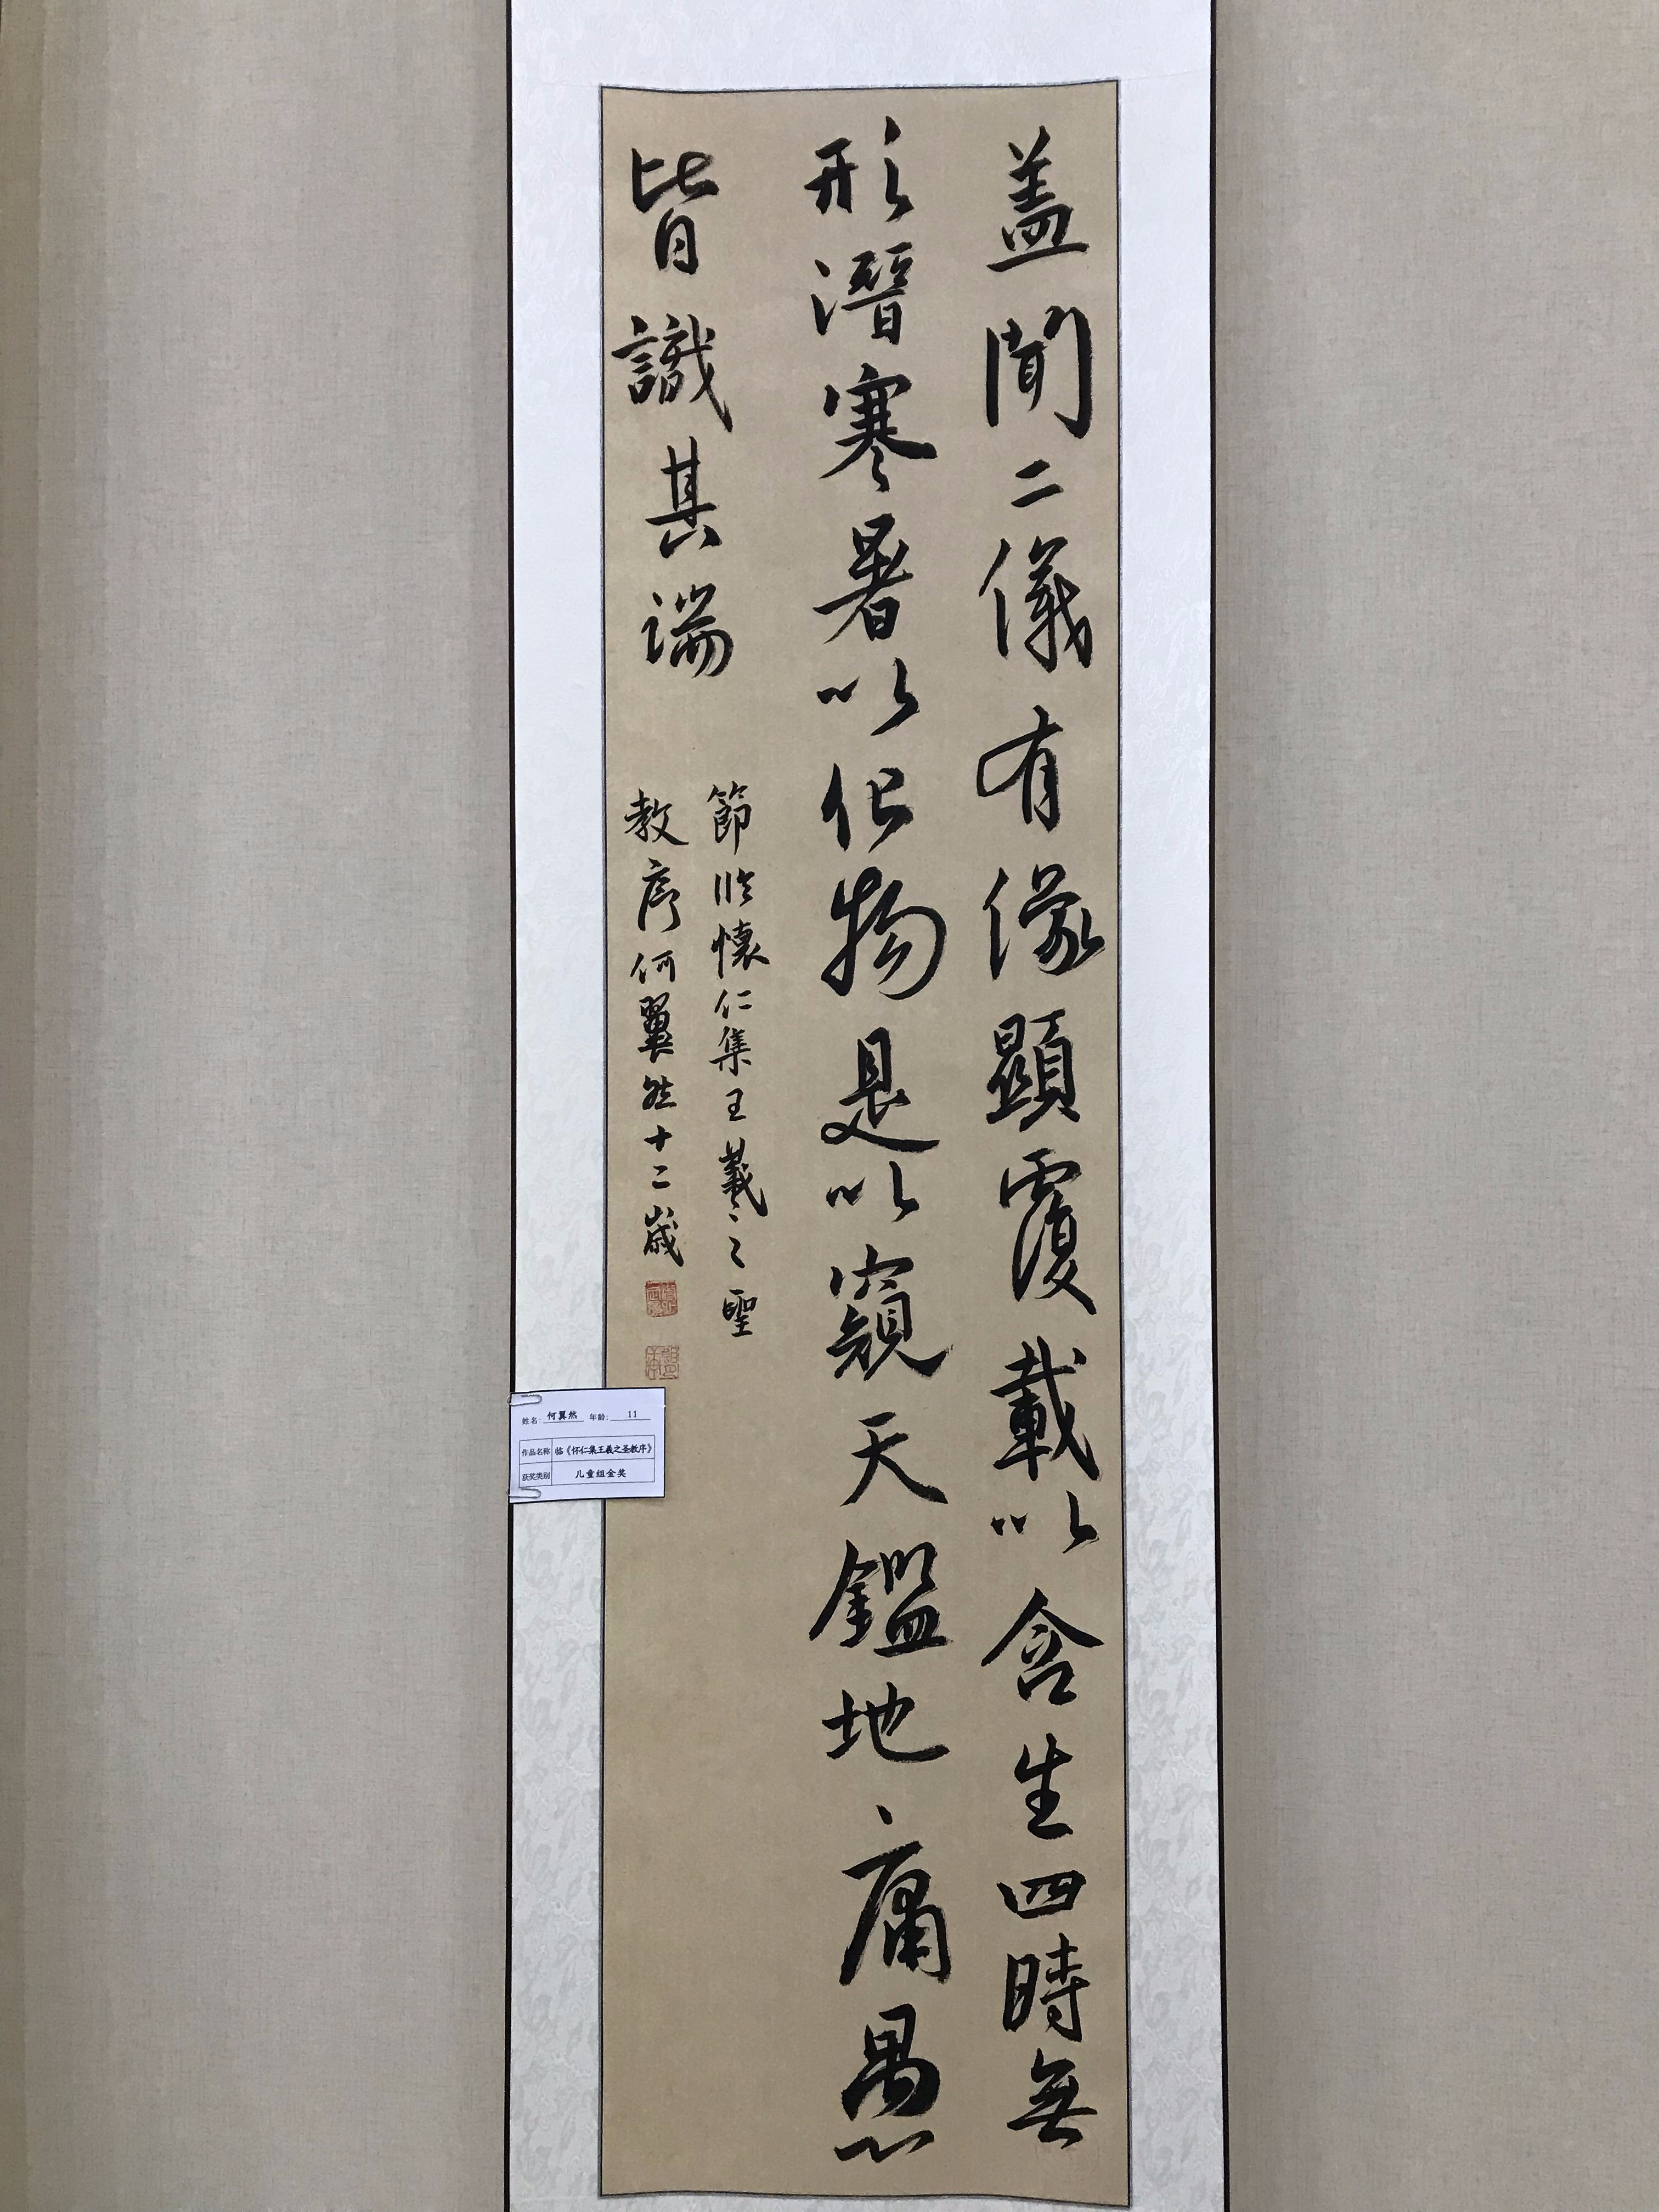 盖聞二儀有像顯覆載以含生四時無
形潛寒暑以化物是以窺天鑑地庸愚
皆識其端
節臨懷仁集王羲之聖
教序何翼然十二歲
姓名: 何翼然 年龄: 11
作品名称 临《怀仁集王羲之圣教序》
获奖类别 儿童组金奖